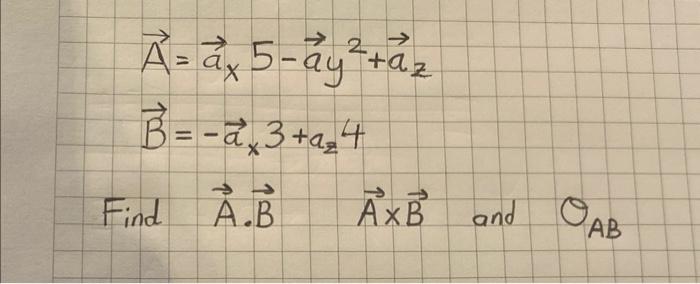 A⃗ = a⃗ₓ 5 - a⃗y² + a⃗z
B⃗ = - a⃗ₓ 3 + az 4
Find A⃗ . B⃗ A⃗ x B⃗ and ΘAB